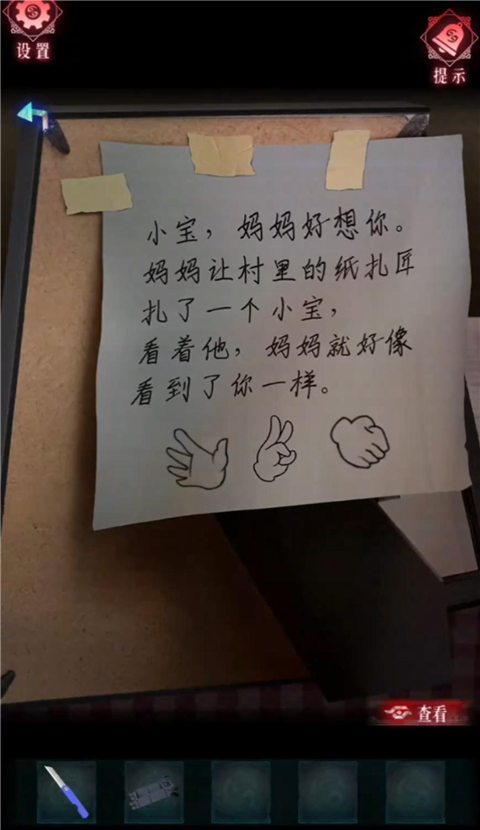 设置
提示
小宝，妈妈好想你。
妈妈让村里的纸扎匠
扎了一个小宝，
看着他，妈妈就好像
看到了你一样。
查看